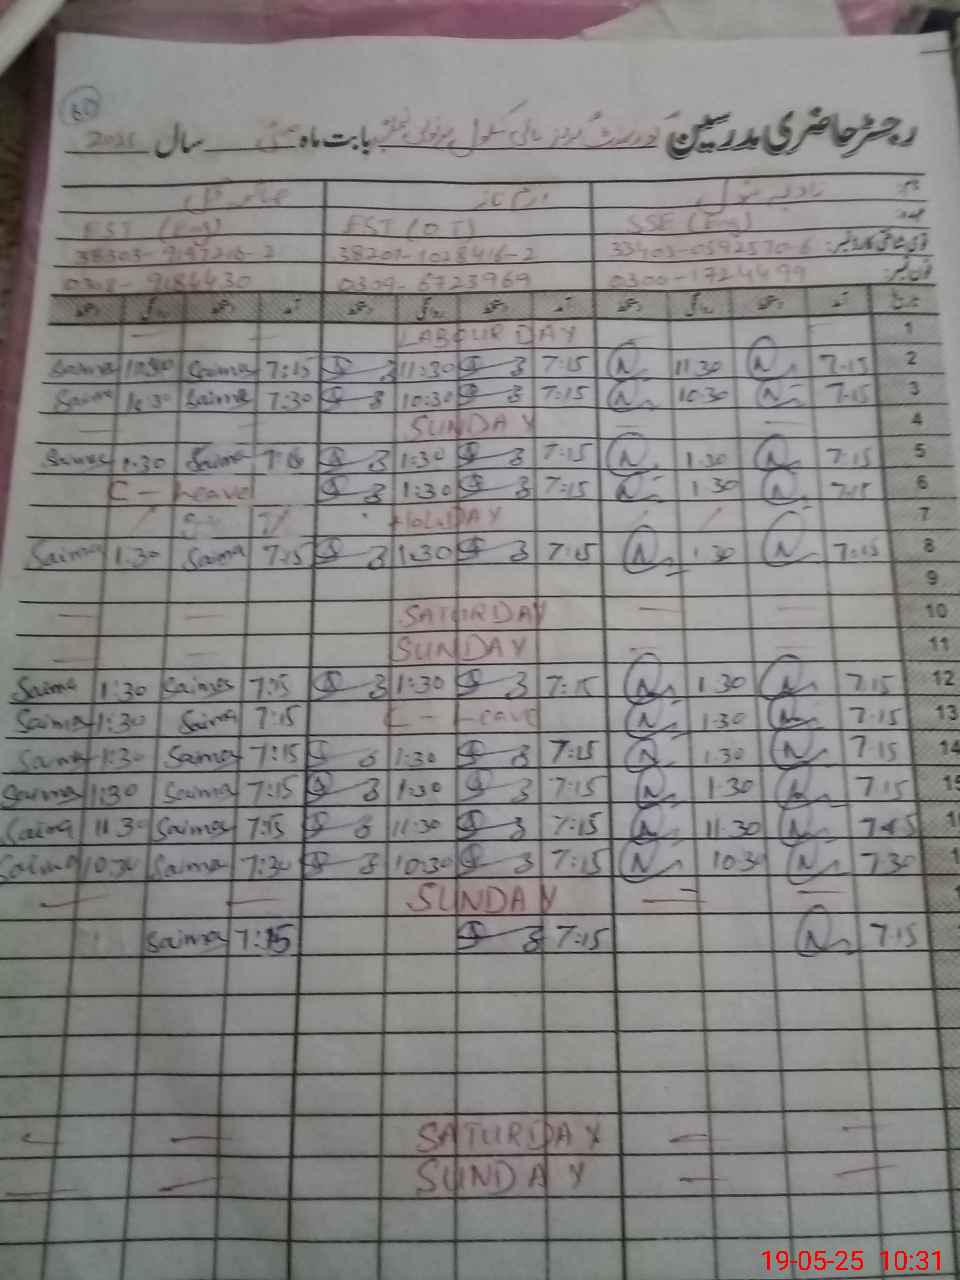 60
رجسٹر حاضری مدرسین گورنمنٹ گرلز ہائی سکول بابت ماہ مئی سال 2025
نام
عہدہ SSE (Eng) EST (O.T) EST (Eng)
قومی شناختی کارڈ نمبر: 33403-0592570-6 38207-1028416-2 38303-9197216-2
فون نمبر: 0300-1724499 0309-6723969 0308-9184430
تاریخ آمد دستخط روانگی دستخط آمد دستخط روانگی دستخط آمد دستخط روانگی دستخط
1 LABOUR DAY
2 7:15 11:30 7:15 11:30 7:15 Saima Saima
3 7:15 10:30 7:15 10:30 7:30 Saima 10:30 Saima
4 SUNDAY
5 7:15 1:30 7:15 1:30 7:15 Saima 1:30 Saima
6 7:15 1:30 7:15 1:30 C-Leave
7 HOLIDAY
8 7:15 1:30 7:15 1:30 7:15 Saima 1:30 Saima
9
10 SATURDAY
11 SUNDAY
12 7:15 1:30 7:15 1:30 7:15 Saima 1:30 Saima
13 7:15 1:30 C-Leave 7:15 Saima 1:30 Saima
14 7:15 1:30 7:15 1:30 7:15 Saima 1:30 Saima
7:15 1:30 7:15 1:30 7:15 Saima 1:30 Saima
11:30 7:15 11:30 7:15 Saima 11:30 Saima
7:30 10:30 7:15 10:30 7:30 Saima 10:30 Saima
SUNDAY
7:15 7:15 7:15 Saima
SATURDAY
SUNDAY
19-05-25 10:31